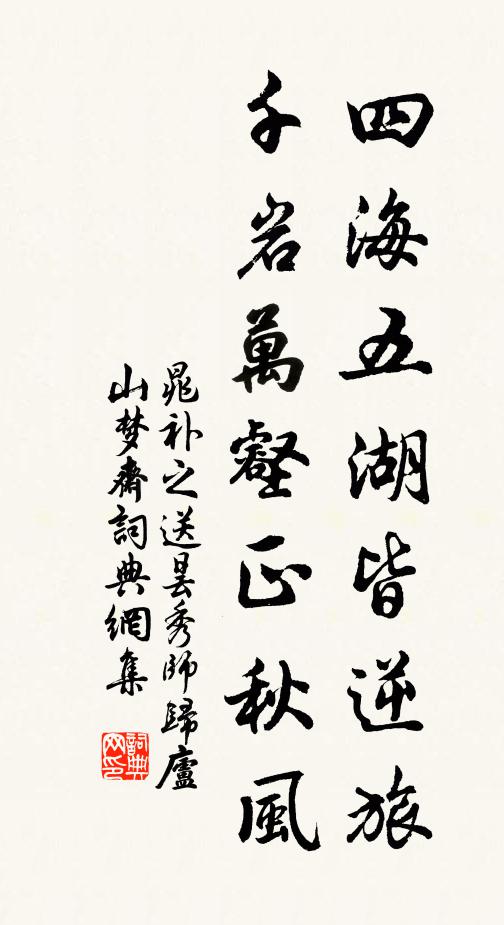 四海五湖皆逆旅
千岩萬壑正秋風
晁补之送昙秀師歸廬
山梦齋詞典網集
詞典
网印